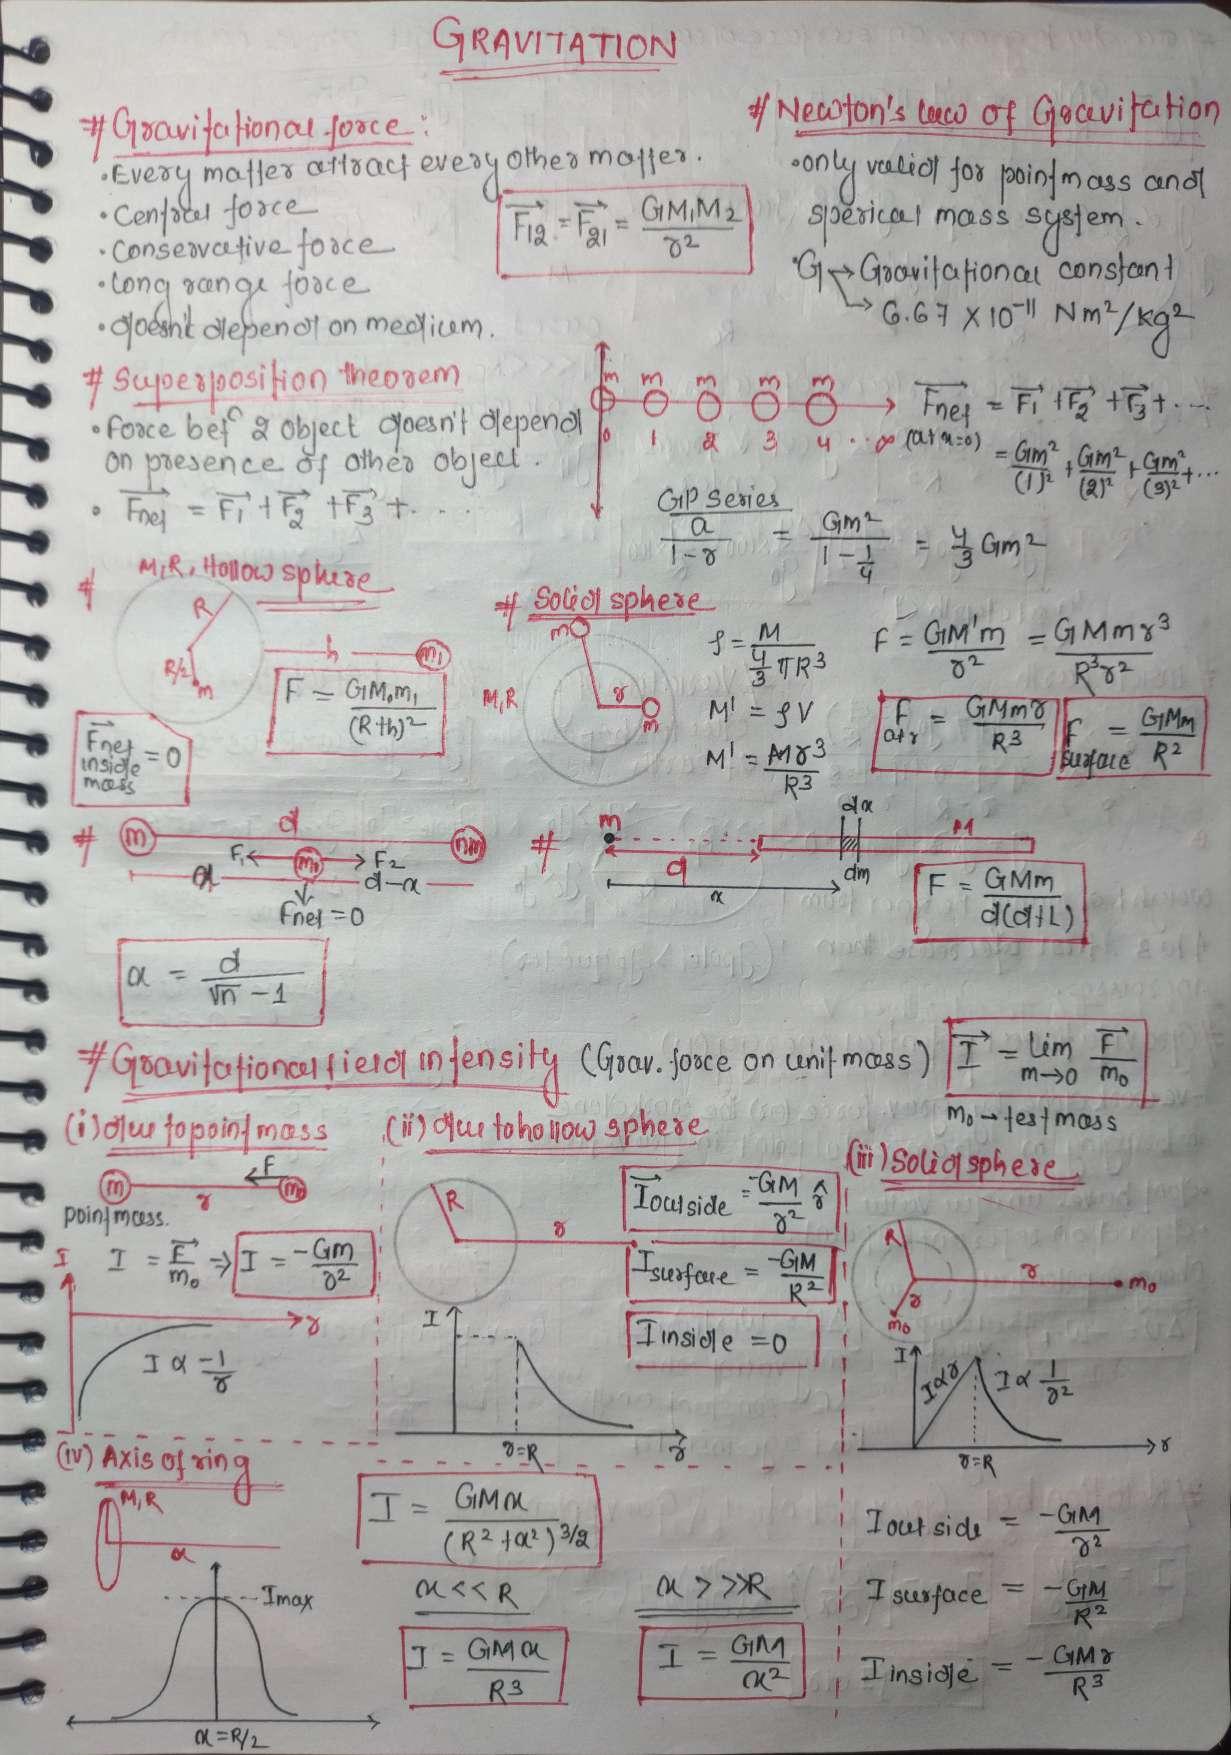 GRAVITATION
# Gravitational force :
• Every matter attract every other matter.
• Central force
• Conservative force
• Long range force
• doesn't depend on medium.
F₁₂ = F₂₁ = GM₁M₂ / r²
# Newton's law of Gravitation
• only valid for point mass and
sperical mass system.
• G → Gravitational constant
→ 6.67 × 10⁻¹¹ Nm²/kg²
# Superposition theorem
• force betⁿ 2 object doesn't depend
on presence of other object.
• Fnet = F₁ + F₂ + F₃ + . . . .
m m m m m
0 1 2 3 4 . . ∞
Fnet = F₁ + F₂ + F₃ + ....
(at x=0)
= Gm²/(1)² + Gm²/(2)² + Gm²/(3)² + ...
GP series
a / 1-r = Gm² / 1 - 1/4 = 4/3 Gm²
# M, R, Hollow sphere
R
R/2
m
h
m₁
F = GM.m₁ / (R+h)²
Fnet inside mass = 0
# Solid sphere
m
M,R
r
m
ρ = M / 4/3 πR³
M' = ρV
M' = Mr³ / R³
F = GM'm / r² = GMmr³ / R³r²
F at r = GMmr / R³
F surface = GMm / R²
# m d nm
F₁ ← m₀ → F₂
x d-x
Fnet = 0
x = d / √n - 1
# m dx M
d dm
x
F = GMm / d(d+L)
# Gravitational field intensity (Grav. force on unit mass)
I = lim m→0 F / m₀
m₀ → test mass
(i) due to point mass
m r F m₀
point mass.
I = F/m₀ ⇒ I = -Gm / r²
I
r
I ∝ -1/r
(ii) due to hollow sphere
R
r
I outside = -GM / r² r̂
I surface = -GM / R²
I inside = 0
I
r=R r
(iii) Solid sphere
R
r m₀
r
m₀
I
I∝r
I ∝ 1/r²
r=R r
I outside = -GM / r²
I surface = -GM / R²
I inside = -GMr / R³
(iv) Axis of ring
M,R
x
Imax
x = R/2
I = GMx / (R² + x²)^3/2
x << R
I = GMx / R³
x >>> R
I = GM / x²